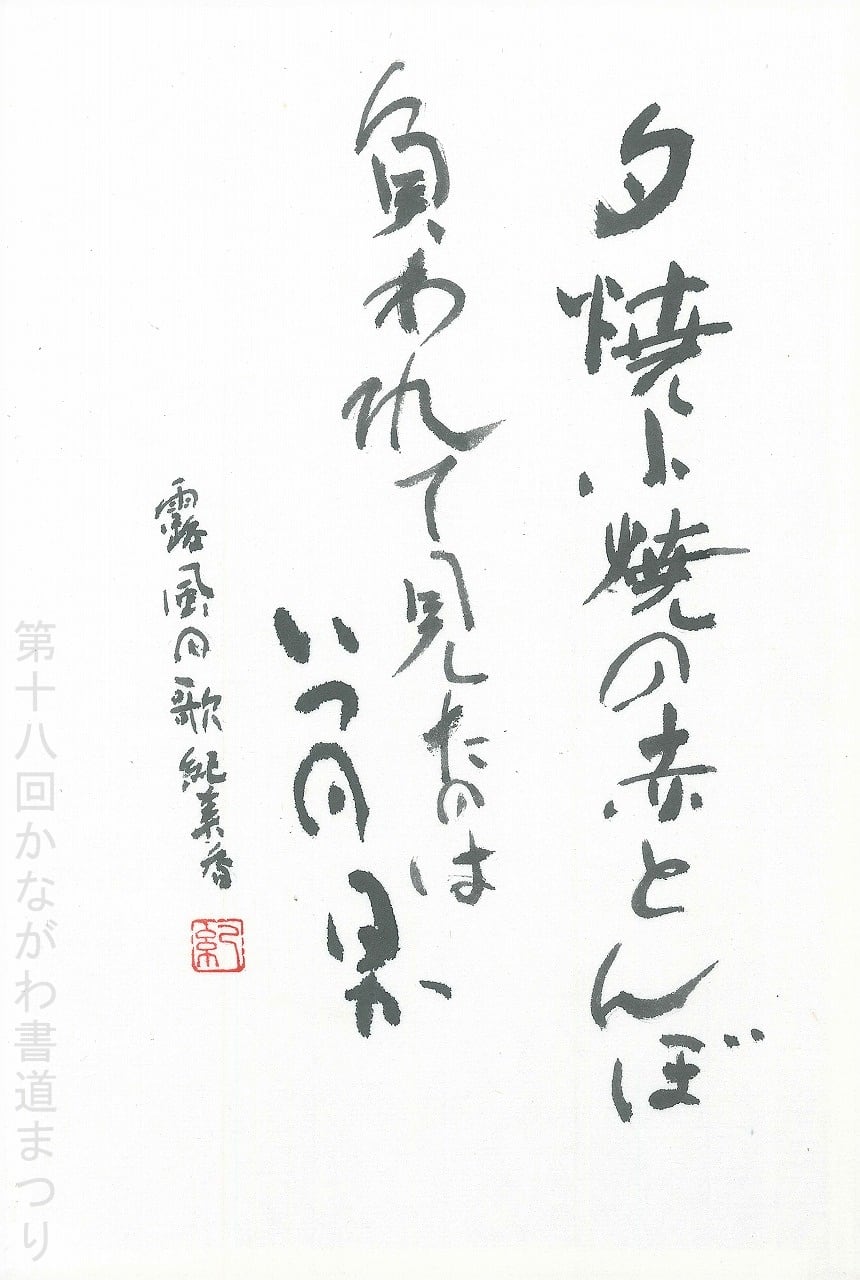 夕焼小焼の赤とんぼ
負われて見たのは
いつの日か
露風の歌 紀美香
紀
第十八回かながわ書道まつり